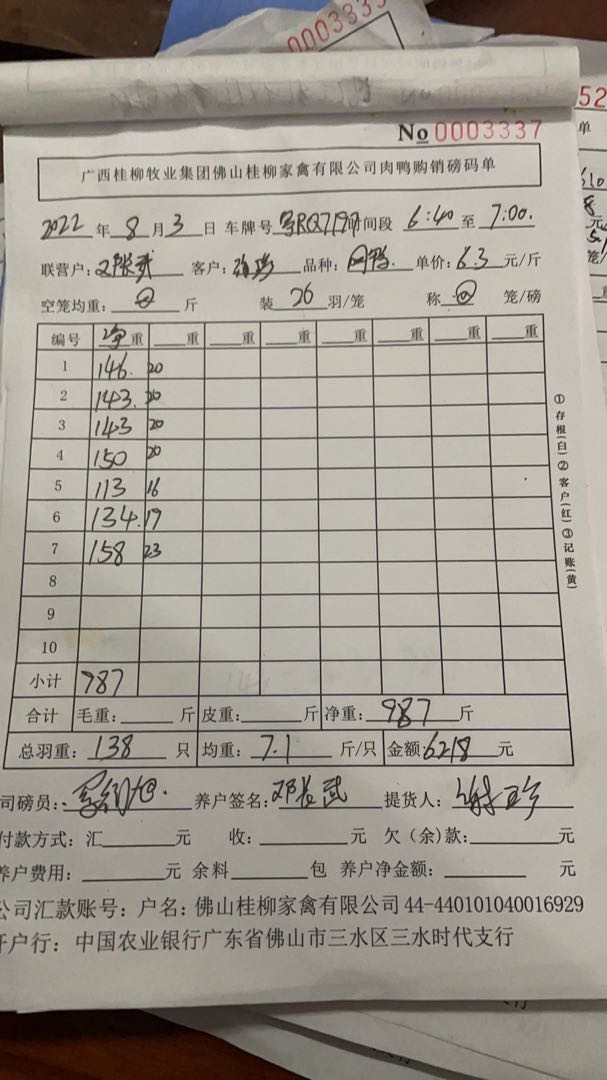 000333
No 0003337
广西桂柳牧业集团佛山桂柳家禽有限公司肉鸭购销磅码单
2022 年 8 月 3 日 车牌号 RQ719 时间段 6:40 至 7:00.
联营户: 邓长武 客户: 品种: 单价: 6.3 元/斤
空笼均重: 斤 装 20 羽/笼 称 笼/磅
编号 净重 重 重 重 重 重 重 重
1 146. 20
2 143. 20
3 143 20
4 150 20
5 113 16
6 134. 19
7 158 23
8
9
10
小计 987
合计 毛重: 斤 皮重: 斤 净重: 987 斤
总羽重: 138 只 均重: 7.1 斤/只 金额: 6218 元
司磅员: 养户签名: 邓长武 提货人: 谢珍
付款方式: 汇 元 收: 元 欠(余)款: 元
养户费用: 元 余料 包 养户净金额: 元
公司汇款账号: 户名: 佛山桂柳家禽有限公司 44-440101040016929
开户行: 中国农业银行广东省佛山市三水区三水时代支行
①存根(白)②客户(红)③记账(黄)
52
单